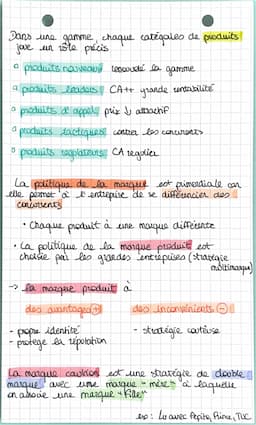 Dans une gamme, chaque catégories de produits
joue un rôle précis
produits nouveaux renouvelé la gamme
produits leaders CA++ grande rentabilité
produits d'appels prix ↓ attractif
produits tactiques contrer les concurrents
produits régulateurs CA régulier
La politique de la marque est primordiale car
elle permet à l'entreprise de se différencier des
concurrents
• Chaque produit à une marque différente
• La politique de la marque produit est
choisie par les grandes entreprises (stratégie
multimarque)
→ la marque produit à
des avantages + des inconvénients -
- propre identité - stratégie coûteuse
- protège la réputation
La marque caution est une stratégie de double
marque avec une marque "mère" à laquelle
on associe une marque "fille"
ex : Lu avec Pepito, Prince, TUC